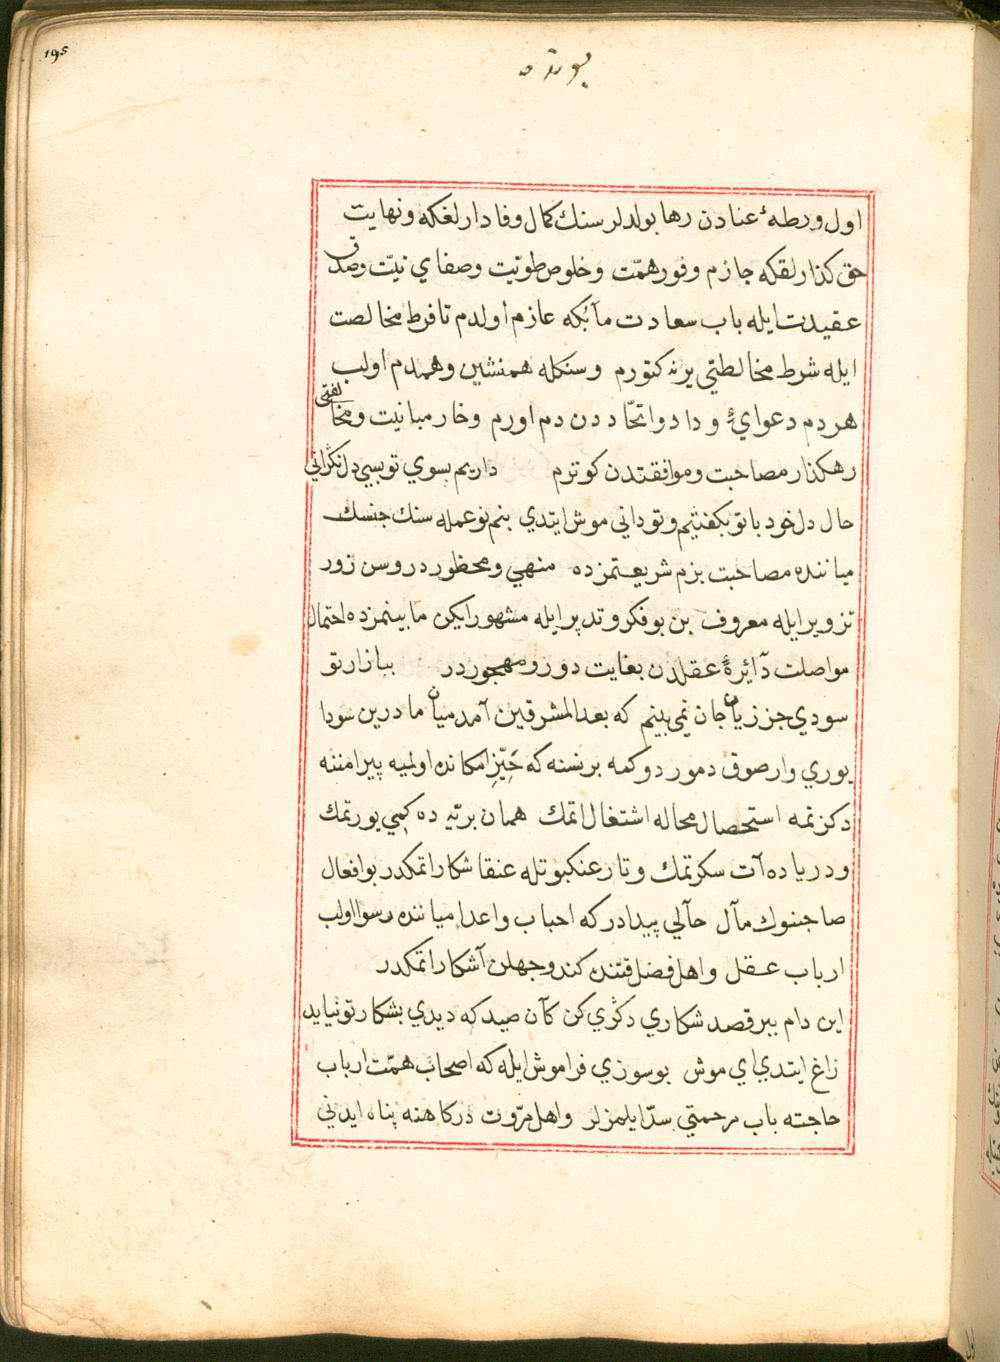 195
اول ورطهٔ عنادن رها بولدلر سنك كمال وفا دارلغكه ونهايت
حق كذارلقكه جازم وفور همّت وخلوص طويّت وصفاي نيّت وصدق
عقيدت ايله باب سعادت مآبكه عازم اولدم تا فرط مخالصت
ايله شرط مخالطتي يرنه كتورم وسنكله همنشين وهمدم اولب
هر دم دعوائ و داد واتحّاد دن دم اورم وخار مبانيت ومخالفتى
رهكذار مصاحبت وموافقتدن كوترم داريم بسوي تو بسي دل نكراني
حال دل خود با تو بكفتيم و تو داني موش ايتدي بنم نوعمله سنك جنسك
مياننده مصاحبت بزم شريعتمزده منهي ومحظور در وسن زور
تزوير ايله معروف بن بو فكر وتدبير ايله مشهور ايكن مابينمزده احتمال
مواصلت دآئرهٔ عقلدن بغايت دور ومهجور در ببازار تو
سودي جز زيان جان نمي بينم كه بعد المشرقين آمد ميان ما درين سودا
يوري وار صوق دمور دوكمه برنسنه كه حَيِّزِ امكانده اولميه پيرامننه
دكزتمه استحصال محاله اشتغال اتمك همان برّيه ده كمي يورتمك
ودرياده آت سكرتمك وتار عنكبوتله عنقا شكار اتمكدر بو افعال
صاحبنوك مآل حآلي پيدادر كه احباب واعدا مياننده رسوا اولب
ارباب عقل واهل فضل قتنده كندو جهلن آشكارا تمكدر
اين دام ببر قصد شكاري دكري كن كآن صيد كه ديدي بشكار تو نيايد
زاغ ايتدي اي موش بو سوزي فراموش ايله كه اصحاب همّت ارباب
حاجته باب مرحمتي سدّ ايلمزلر واهل مرّوت دركاهنه پناه ايدني